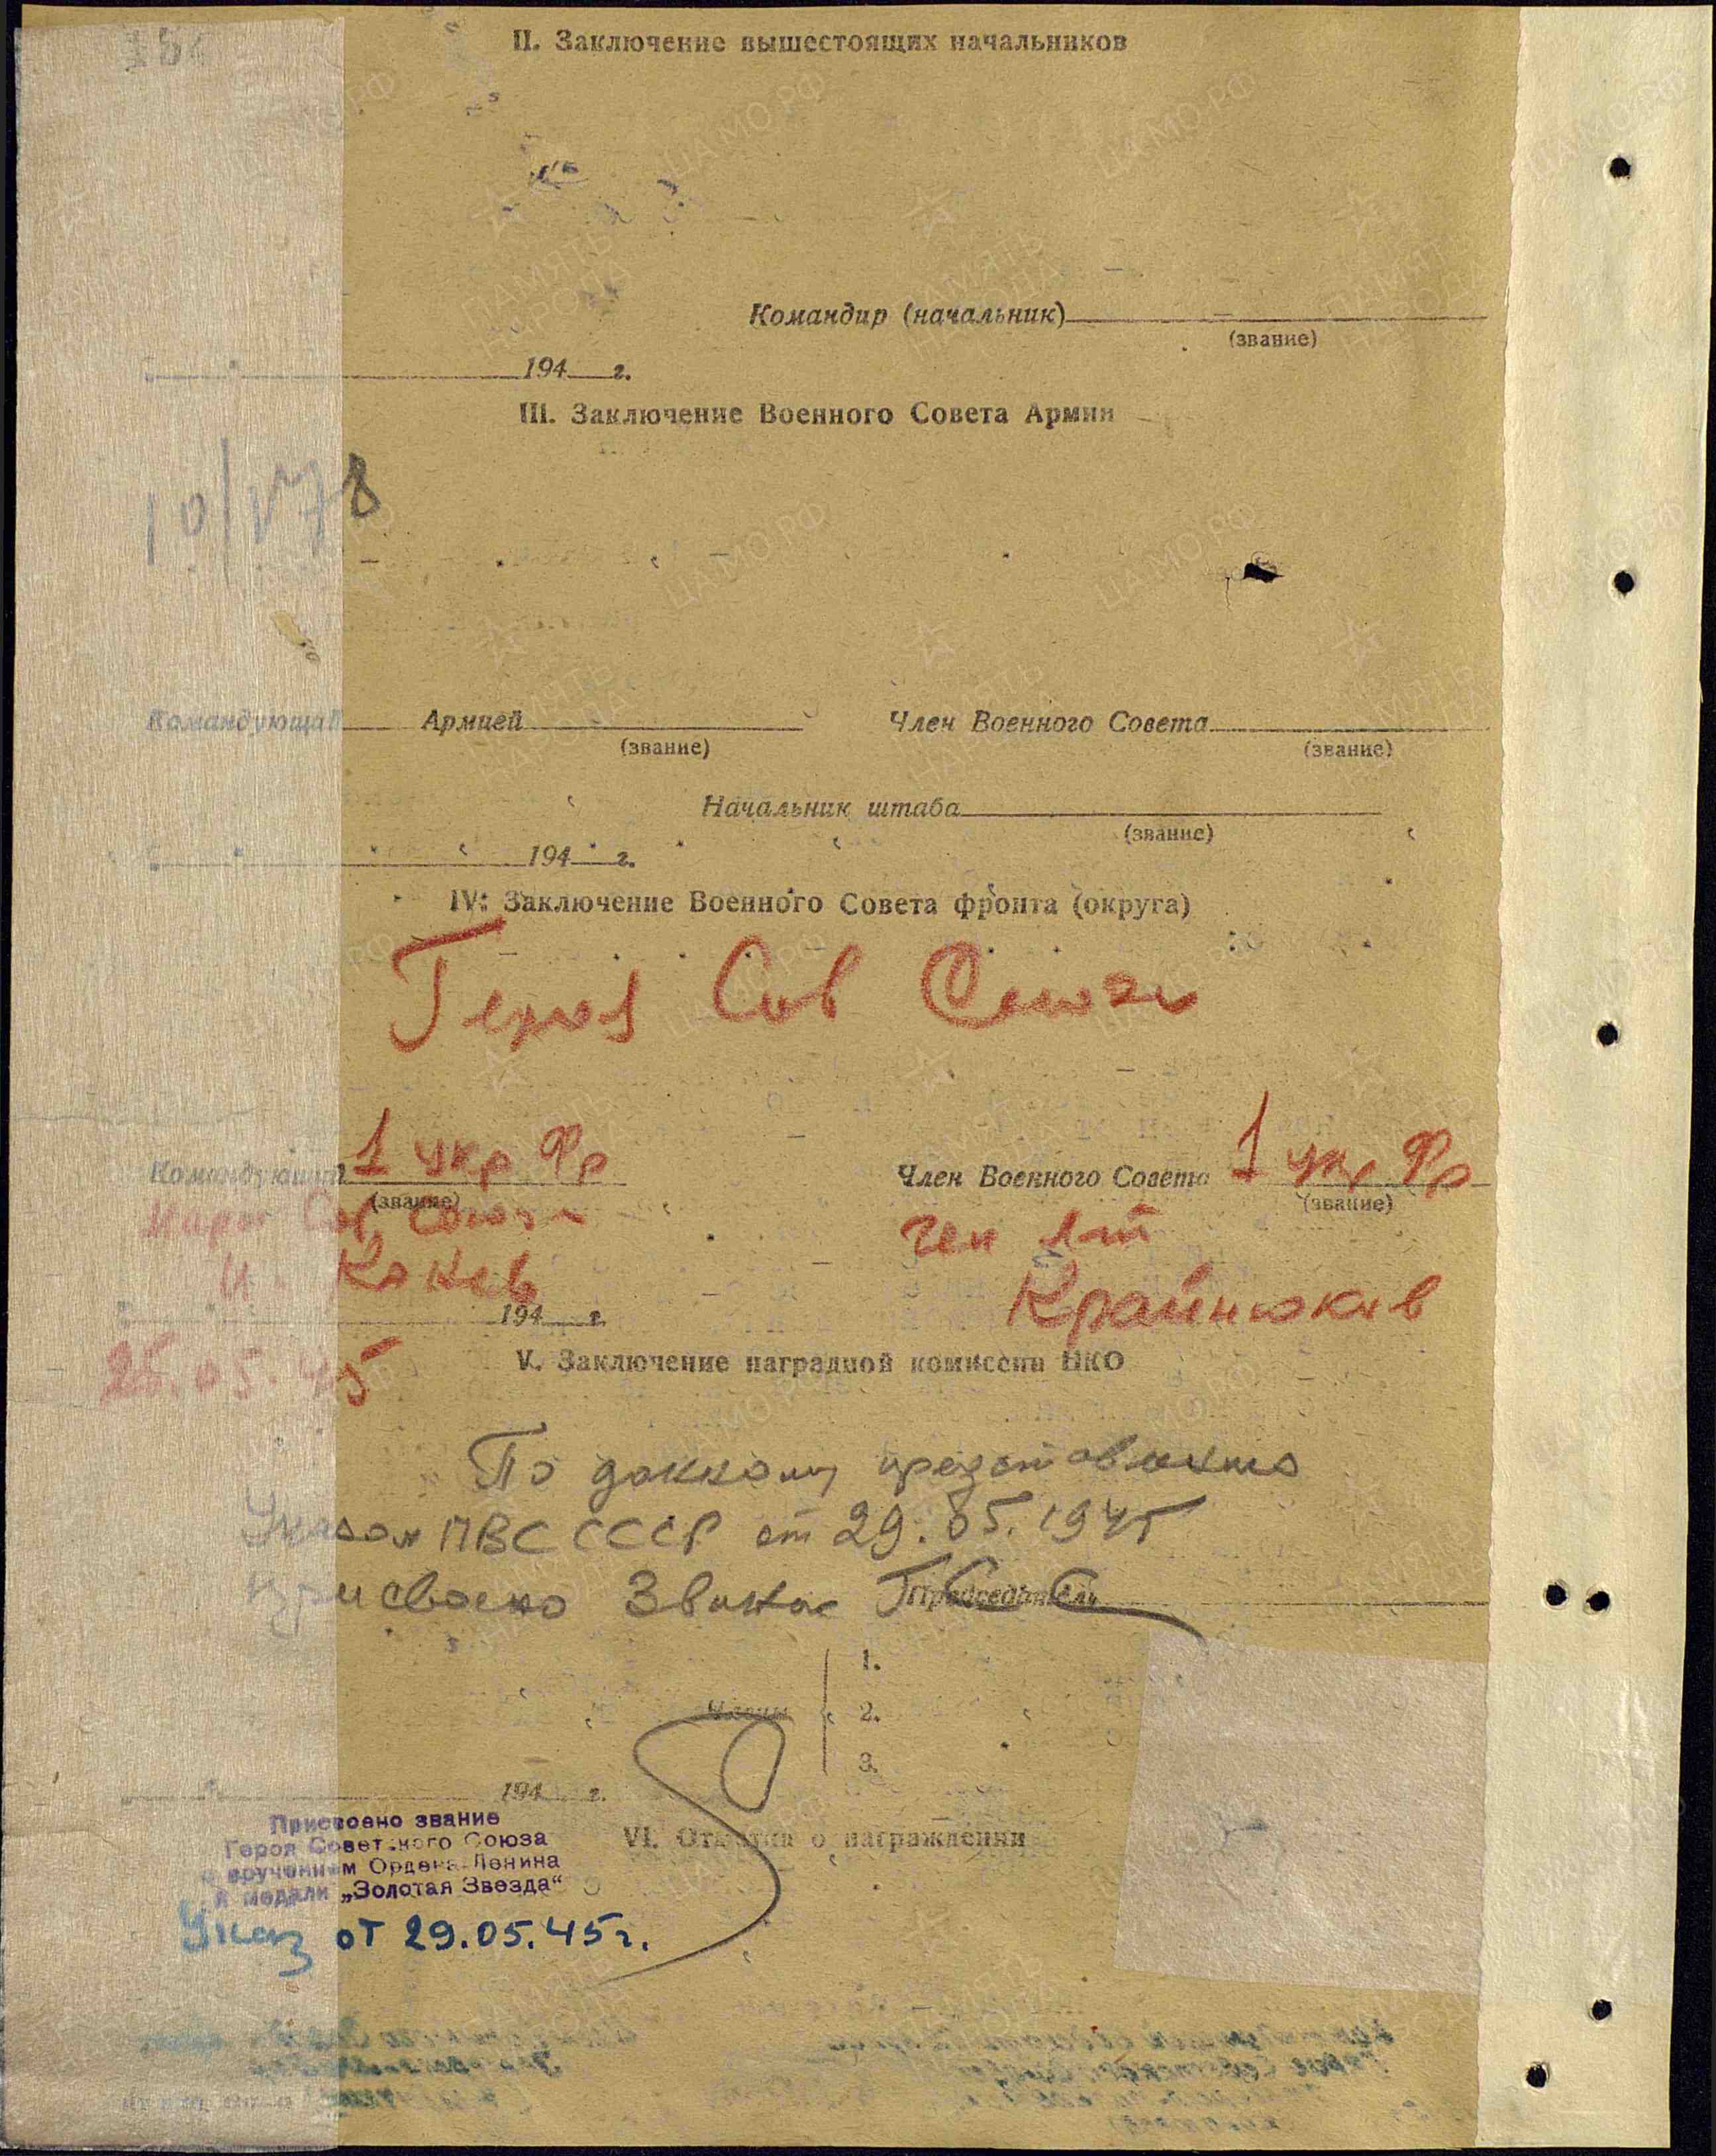 II. Заключение вышестоящих начальников
Командир (начальник)
(звание)
194 г.
III. Заключение Военного Совета Армии
10/1778
Командующий Армией Член Военного Совета
(звание) (звание)
Начальник штаба
(звание)
194 г.
IV. Заключение Военного Совета фронта (округа)
Героя Сов Союза
Командующий 1 Укр Фр Член Военного Совета 1 Укр Фр
(звание) (звание)
Марш Сов Союза ген л-т
И. Конев Крайнюков
194 г.
25.05.45
V. Заключение наградной комиссии НКО
По данному представлению
Указом ПВС СССР от 29.05.1945
присвоено Звание ГСС
Председатель
Члены
1.
2.
3.
194 г.
VI. Отметка о награждении
Присвоено звание
Героя Советского Союза
с вручением Ордена Ленина
и медали „Золотая Звезда“
Указ от 29.05.45г.
ЦАМО РФ
ПАМЯТЬ
НАРОДА